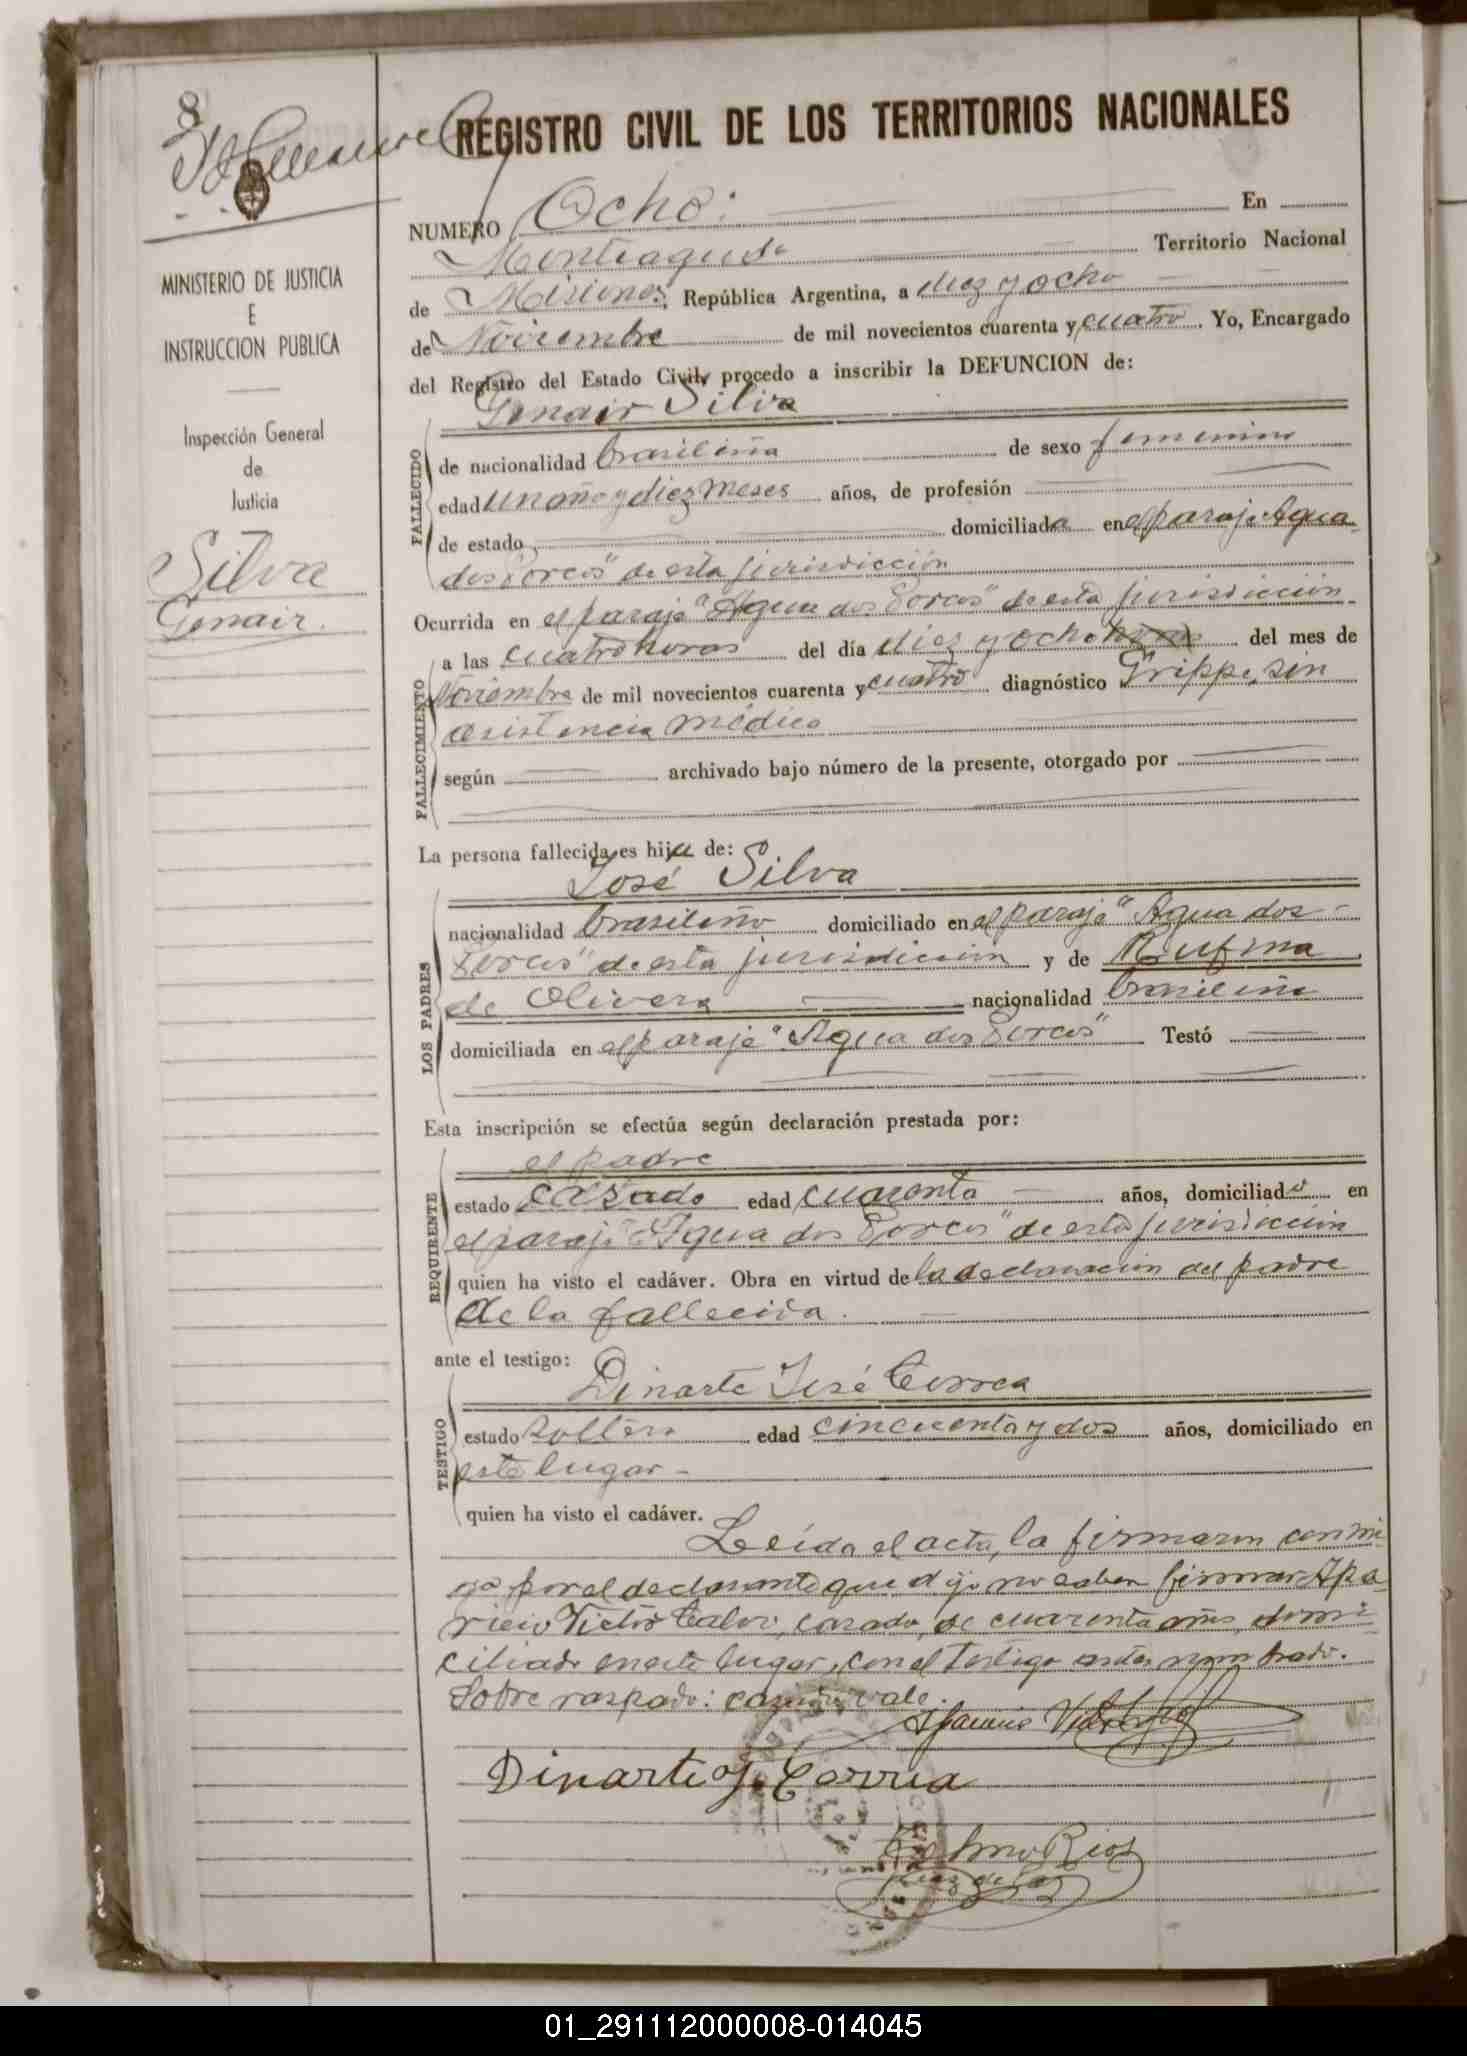 8
REGISTRO CIVIL DE LOS TERRITORIOS NACIONALES
NUMERO Ocho: En
Monteagudo Territorio Nacional
de Misiones, República Argentina, a diez y ocho
de Noviembre de mil novecientos cuarenta y cuatro. Yo, Encargado
del Registro del Estado Civil, procedo a inscribir la DEFUNCION de:
Genair Silva
MINISTERIO DE JUSTICIA
E
INSTRUCCION PUBLICA
Inspección General
de
Justicia
Silva
Genair.
FALLECIDO
de nacionalidad brasileña de sexo femenino
edad un año y diez meses años, de profesión
de estado domiciliada en el paraje "Agua
dos Porcos" de esta jurisdicción
Ocurrida en el paraje "Agua dos Porcos" de esta jurisdicción
FALLECIMIENTO
a las cuatro horas del día diez y ocho horas del mes de
Noviembre de mil novecientos cuarenta y cuatro diagnóstico Grippe, sin
asistencia médica
según archivado bajo número de la presente, otorgado por
La persona fallecida es hija de:
José Silva
LOS PADRES
nacionalidad brasileño domiciliado en el paraje "Agua dos
Porcos" de esta jurisdicción y de Rufina
de Olivera nacionalidad brasileña
domiciliada en el paraje "Agua dos Porcos" Testó
Esta inscripción se efectúa según declaración prestada por:
el padre
REQUIRENTE
estado casado edad cuarenta años, domiciliado en
el paraje "Agua dos Porcos" de esta jurisdicción
quien ha visto el cadáver. Obra en virtud de la declaración del padre
de la fallecida.
ante el testigo:
Dinarte José Correa
TESTIGO
estado soltero edad cincuenta y dos años, domiciliado en
este lugar
quien ha visto el cadáver.
Leída el acta, la firmaron conmi-
go por el declarante que dijo no saber firmar Apa-
ricio Victor casado, de cuarenta años, domi-
ciliado en este lugar, con el testigo antes nombrado.
Sobre raspado: vale.
Dinarte J. Correa
Rios
Juez de Paz
01_291112000008-014045